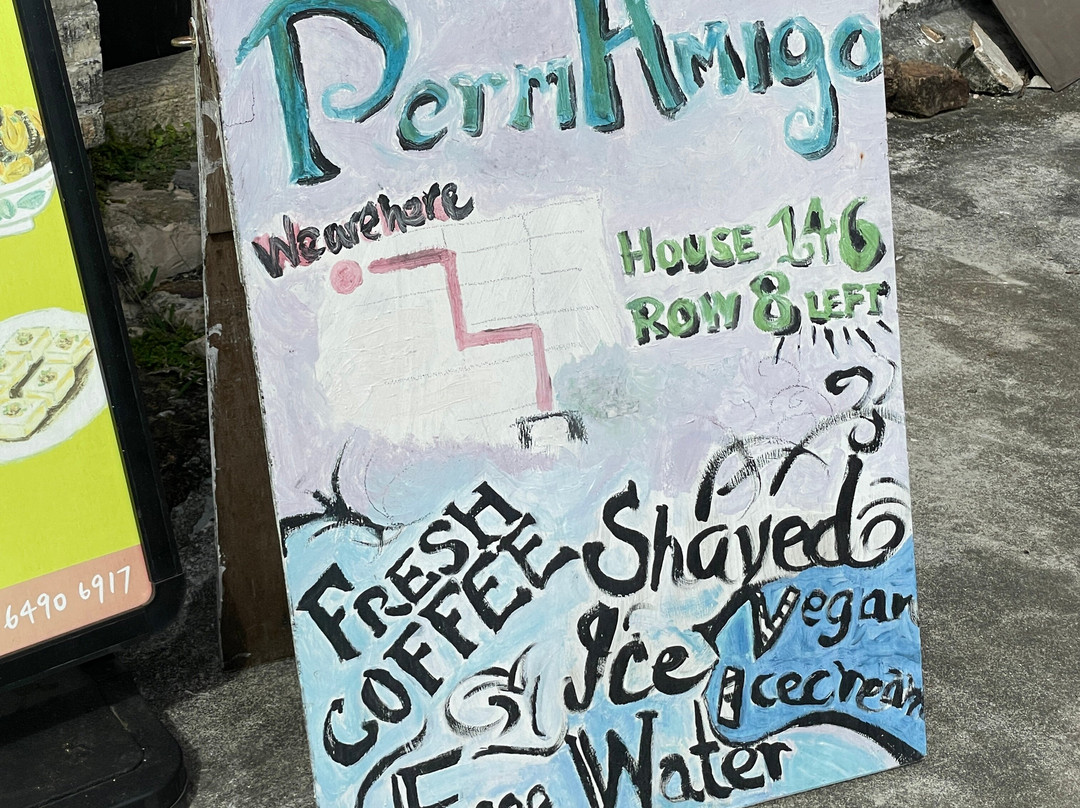 PermAmigo
We are here
HOUSE 146
ROW 8 LEFT
FRESH
COFFEE
Shaved
Ice
Vegan
Icecream
Free Water
6490 6917